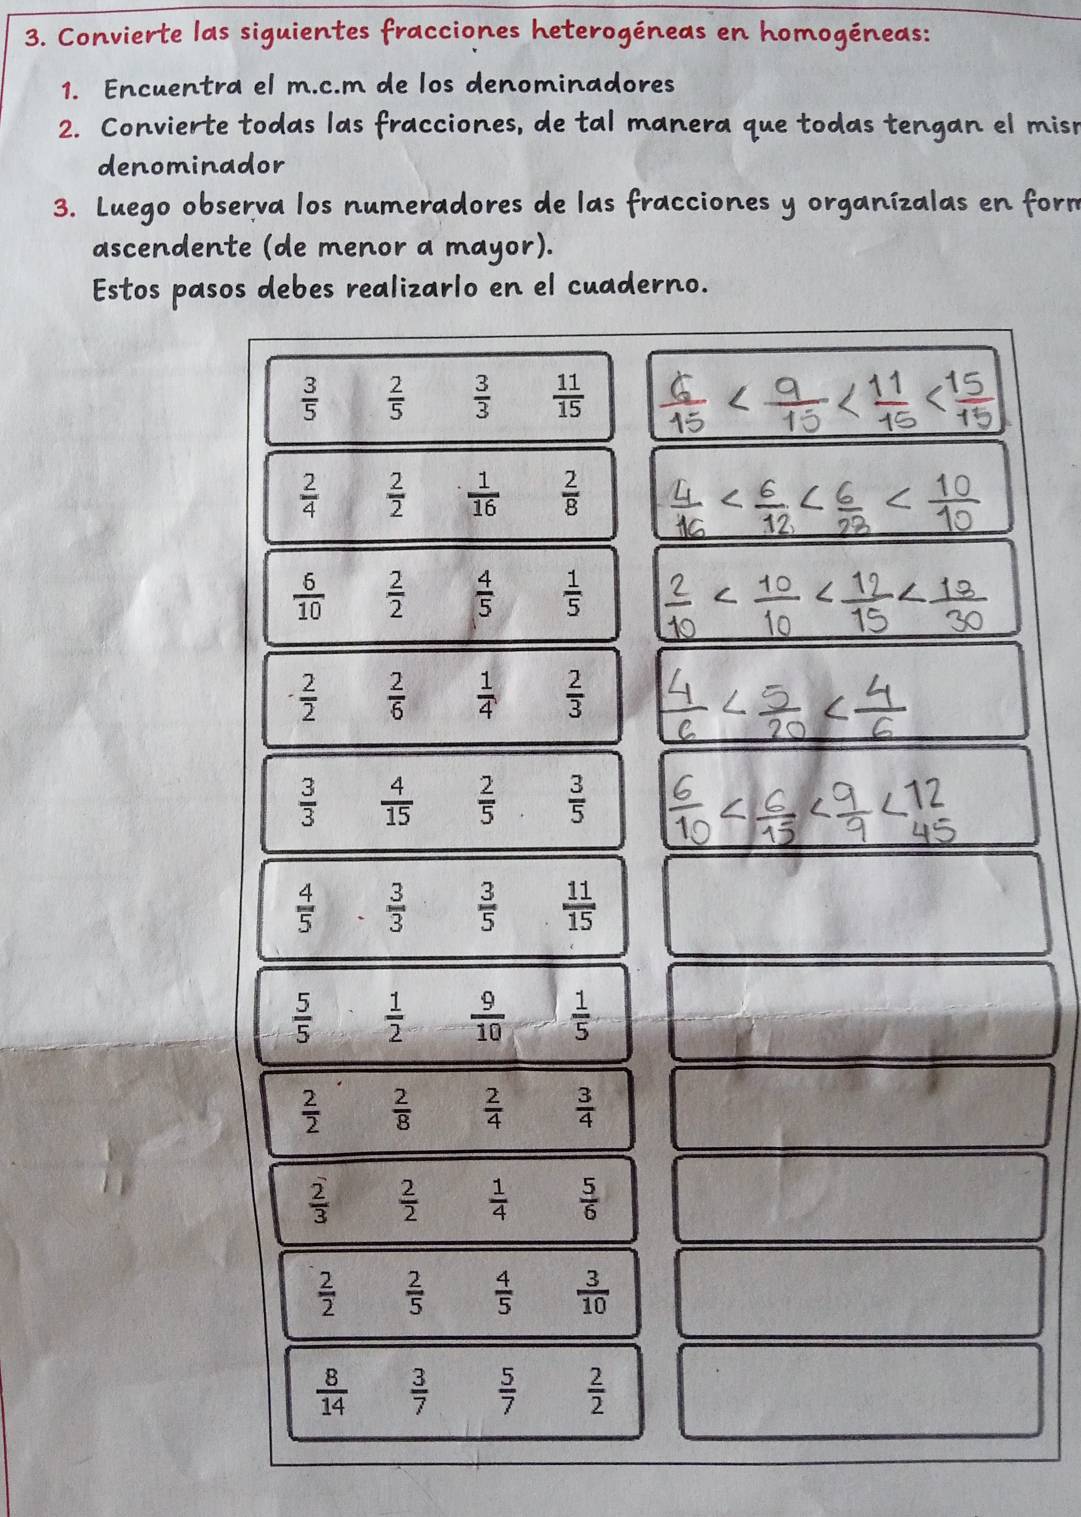 3. Convierte las siguientes fracciones heterogéneas en homogéneas:
1. Encuentra el m.c.m de los denominadores
2. Convierte todas las fracciones, de tal manera que todas tengan el mism
denominador
3. Luego observa los numeradores de las fracciones y organízalas en form
ascendente (de menor a mayor).
Estos pasos debes realizarlo en el cuaderno.
3/5 2/5 3/3 11/15 6/15 < 9/15 < 11/15 < 15/15
2/4 2/2 1/16 2/8 4/16 < 6/12 < 6/28 < 10/10
6/10 2/2 4/5 1/5 2/10 < 10/10 < 12/15 < 18/30
2/2 2/6 1/4 2/3 4/6 < 5/20 < 4/6
3/3 4/15 2/5 3/5 6/10 < 6/15 < 9/9 < 12/45
4/5 3/3 3/5 11/15
5/5 1/2 9/10 1/5
2/2 2/8 2/4 3/4
2/3 2/2 1/4 5/6
2/2 2/5 4/5 3/10
8/14 3/7 5/7 2/2